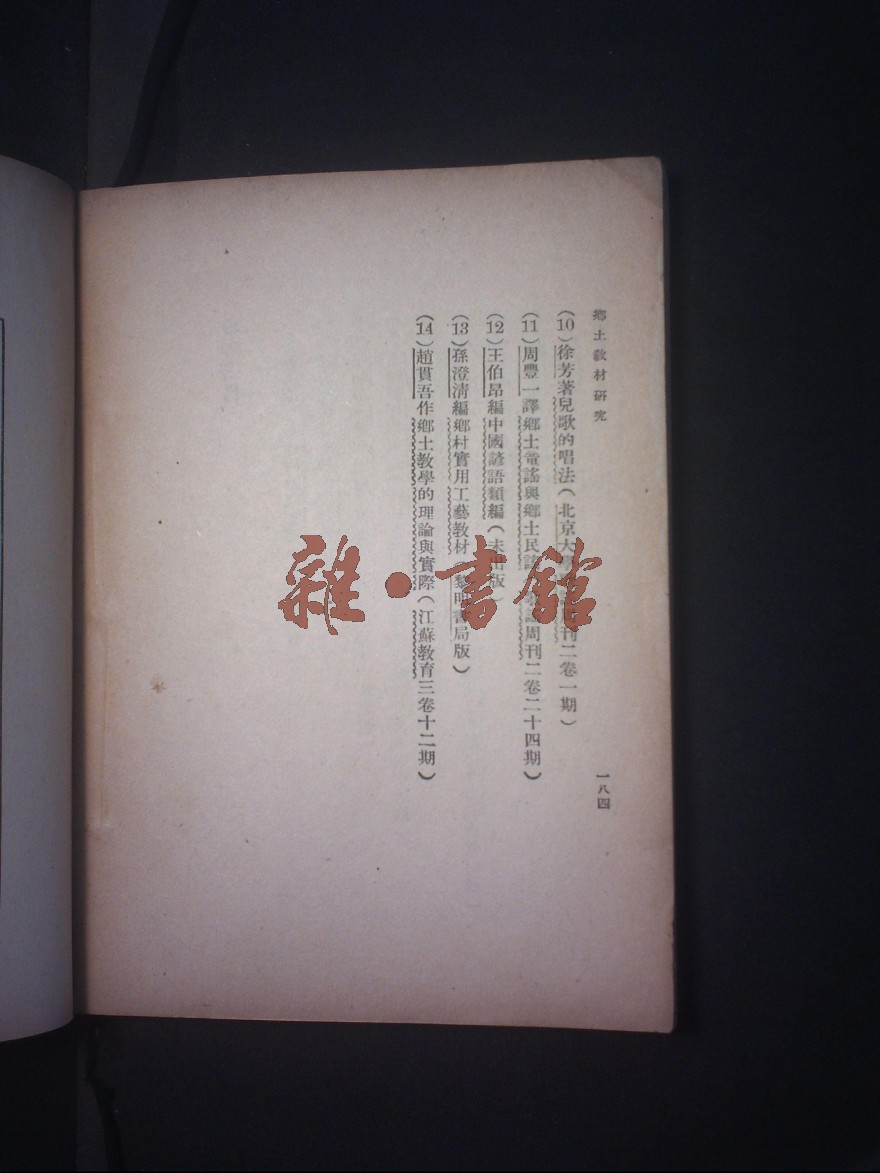 鄉土教材研究
一八四
(10)徐芳著兒歌的唱法(北京大學周刊二卷一期)
(11)周豐一譯鄉土童謠與鄉土民謠周刊二卷二十四期)
(12)王伯昂編中國諺語類編(未出版)
(13)孫澄清編鄉村實用工藝教材(黎明書局版)
(14)趙貫吾作鄉土教學的理論與實際(江蘇教育三卷十二期)
雜·書館